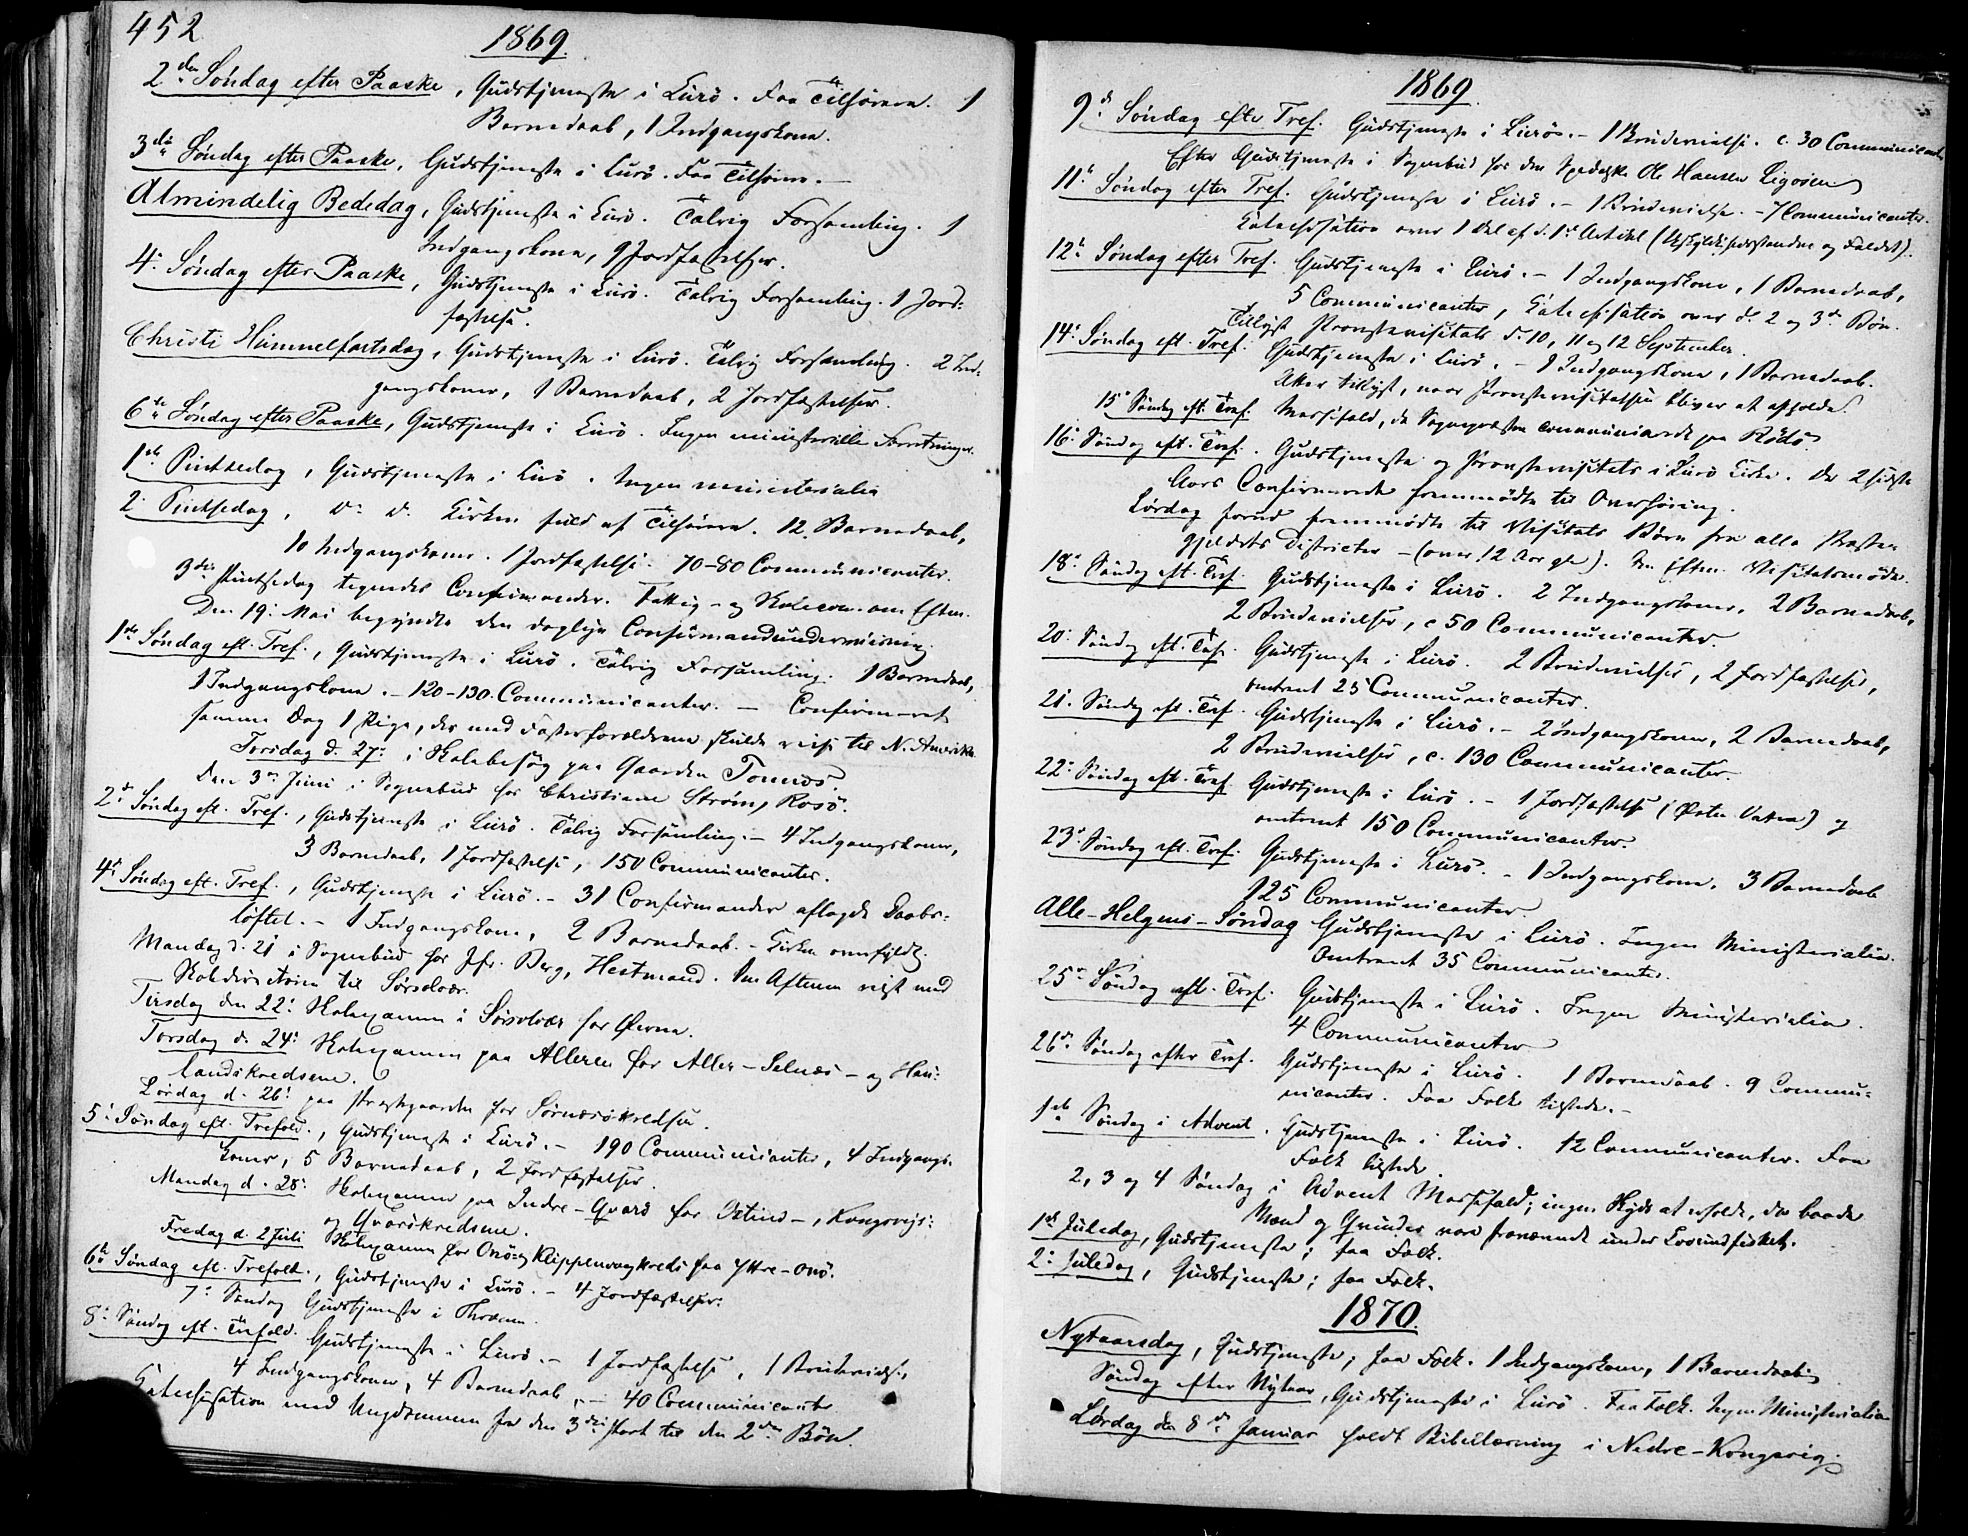 452
1869.
2den Søndag efter Paaske, Gudstjeneste i Lurö. Faa Tilhörere. 1
Barnedaab, 1 Indgangskone.
3die Søndag efter Paaske, Gudstjeneste i Lurö. Faa Tilhörere. —
Almindelig Bededag, Gudstjeneste i Lurö. Talrig Forsamling. 1
Indgangskone, 9 Jordfæstelser.
4. Søndag efter Paaske, Gudstjeneste i Lurö. Talrig Forsamling. 1 Jord-
fæstelse.
Christi Himmelfartsdag, Gudstjeneste i Lurö. Talrig Forsamling. 2 Ind-
gangskoner, 1 Barnedaab, 2 Jordfæstelser.
6te Søndag efter Paaske, Gudstjeneste i Lurö. Ingen ministerielle Forretninger.
1ste Pintsedag, Gudstjeneste i Lurö. Ingen ministerialia
2. Pintsedag, do do. Kirken fuld af Tilhörere. 12 Barnedaab,
10 Indgangskoner. 1 Jordfæstelse. 70-80 Communicanter.
3die Pintsedag tegnedes Confirmander. Fattig- og Skolecom. om Efterm.
Den 19. Mai begyndte den daglige Confirmandundervisning.
1ste Søndag eft. Tref., Gudstjeneste i Lurö. Talrig Forsamling. 1 Barnedaab,
1 Indgangskone. — 120-130 Communicanter. — Confirmeret
samme Dag 1 Pige, der med Fosterforældrene skulde reise til N. Amerika
Torsdag d. 27. i Skolebesøg paa Gaarden Tonnes.
Den 3die Juni i Sognebud for Christiane Strøm, Rosö.
2den Søndag eft. Tref., Gudstjeneste i Lurö. Talrig Forsamling. — 4 Indgangskoner,
3 Barnedaab, 1 Jordfæstelse, 150 Communicanter.
4de Søndag eft. Tref., Gudstjeneste i Lurö. — 31 Confirmander aflagde Daabs-
löftet. — 1 Indgangskone, 2 Barnedaab. — Kirken overfyldt.
Mandag d. 21 i Sognebud for Jfr. Berg, Hestmand. Om Aftenen reist med
Skoledirectören til Sörsolvær.
Tirsdag den 22. Skoleexamen i Sörsolvær for Öerne.
Torsdag d. 24. Skoleexamen paa Alleren for Alder-Selnæs- og Hau-
landskredsene.
Lördag d. 26. paa Præstgaarden for Sörnesökredsen.
5. Søndag eft. Trefold., Gudstjeneste i Lurö. — 190 Communicanter, 4 Indgangs-
koner, 5 Barnedaab, 2 Jordfæstelser.
Mandag d. 28. Skoleexamen paa Indre-Qvarö for Ostind-, Kongsvig-
og Qvarökredsene.
Fredag d. 2 Juli Skoleexamen for Onö- og Klippenvaagkreds paa Yttre-Onö.
6te Søndag eft. Trefold., Gudstjeneste i Lurö. — 4 Jordfæstelser.
7. Søndag Gudstjeneste i Thræna.
8. Søndag eft. Trefold. Gudstjeneste i Lurö. — 1 Jordfæstelse, 1 Brudevielse,
4 Indgangskoner, 4 Barnedaab, — 40 Communicanter
Katechisation med Ungdommen fra den 3die Part til den 2den Bön.
1869.
9de Søndag efter Tref. Gudstjeneste i Lurö. — 1 Brudevielse. c. 30 Communicanter
Efter Gudstjeneste i Sognebud for den Spedalske Ole Hansen Ligöien
11te Søndag efter Tref. Gudstjeneste i Lurö. — 1 Brudevielse. — 7 Communicanter.
Katechisation over 1 Del af d. 1ste Artikel (Uskyldighedsstanden og Faldet).
12te Søndag efter Tref. Gudstjeneste i Lurö. — 1 Indgangskone, 1 Barnedaab,
5 Communicanter, Katechisation over d. 2 og 3die Bön.
Tillyst Provstevisitats d. 10, 11 og 12 September.
14. Søndag eft. Tref. Gudstjeneste i Lurö. — 1 Indgangskone, 1 Barnedaab.
Atter tillyst, naar Provstevisitatsen bliver at afholde.
15de Søndag eft. Tref. Messefald, da Sognepræsten communicerede paa Rödö
16. Søndag eft. Tref. Gudstjeneste og Provstevisitats i Lurö Kirke. De 2 sidste
Aars Confirmerede fremmödte til Overhöring.
Lördag forud fremmödte til Visitats Börn fra alle Præste-
gjeldets Districter — (over 12 Aar gl.). Om Efterm. Visitatsmöde.
18. Søndag eft. Tref. Gudstjeneste i Lurö. 2 Indgangskoner, 2 Barnedaab,
2 Brudevielser, c 50 Communicanter.
20. Søndag eft. Tref. Gudstjeneste i Lurö. 2 Brudevielser, 2 Jordfæstelser,
omtrent 25 Communicanter.
21. Søndag eft. Tref. Gudstjeneste i Lurö. — 2 Indgangskoner, 2 Barnedaab,
2 Brudevielser, c. 130 Communicanter.
22. Søndag eft. Tref. Gudstjeneste i Lurö. — 1 Jordfæstelse (Peter Vatne) og
omtrent 150 Communicanter.
23. Søndag eft. Tref. Gudstjeneste i Lurö. — 1 Indgangskone. 3 Barnedaab
125 Communicanter.
Alle-Helgens-Søndag Gudstjeneste i Lurö. Ingen Ministerialia.
Omtrent 35 Communicanter.
25de Søndag eft. Tref. Gudstjeneste i Lurö. Ingen Ministerialia.
4 Communicanter
26de Søndag efter Tref. Gudstjeneste i Lurö. 1 Barnedaab. 9 Commu-
nicanter. Faa Folk tilstede. —
1ste Søndag i Advent. Gudstjeneste i Lurö. 12 Communicanter. Faa
Folk tilstede.
2, 3 og 4 Søndag i Advent Messefald; ingen Skyds at erholde, da baade
Mænd og Qvinder vare fraværende under Lovundfisket.
1ste Juledag, Gudstjeneste; faa Folk.
2. Juledag, Gudstjeneste; faa Folk.
1870.
Nytaarsdag, Gudstjeneste; faa Folk. 1 Indgangskone, 1 Barnedaab.
Søndag efter Nytaar, Gudstjeneste i Lurö. Faa Folk. Ingen Ministerialia
Lördag den 8de Januar holdt Bibellæsning i Nedre-Kongsvig.